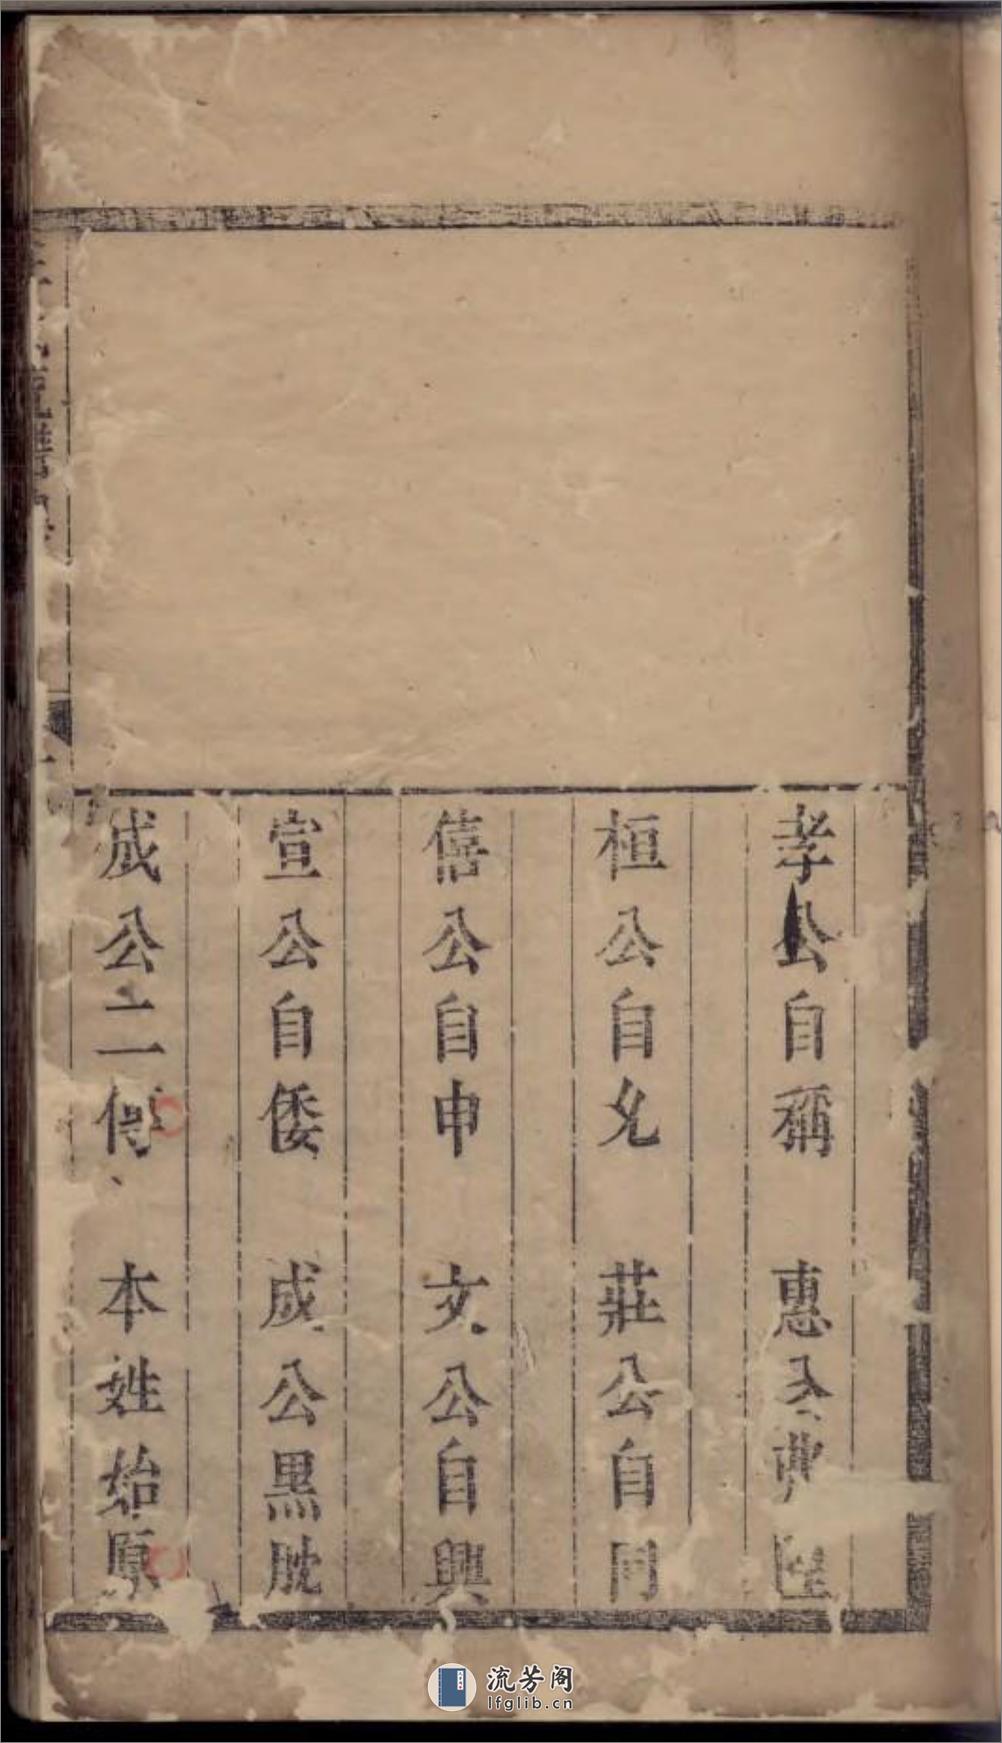 孝公自稱　惠公
桓公自允　莊公自同
僖公自申　文公自興
宣公自倭　成公黑肱
成公二傳　本姓始原
流芳阁
lfglib.cn